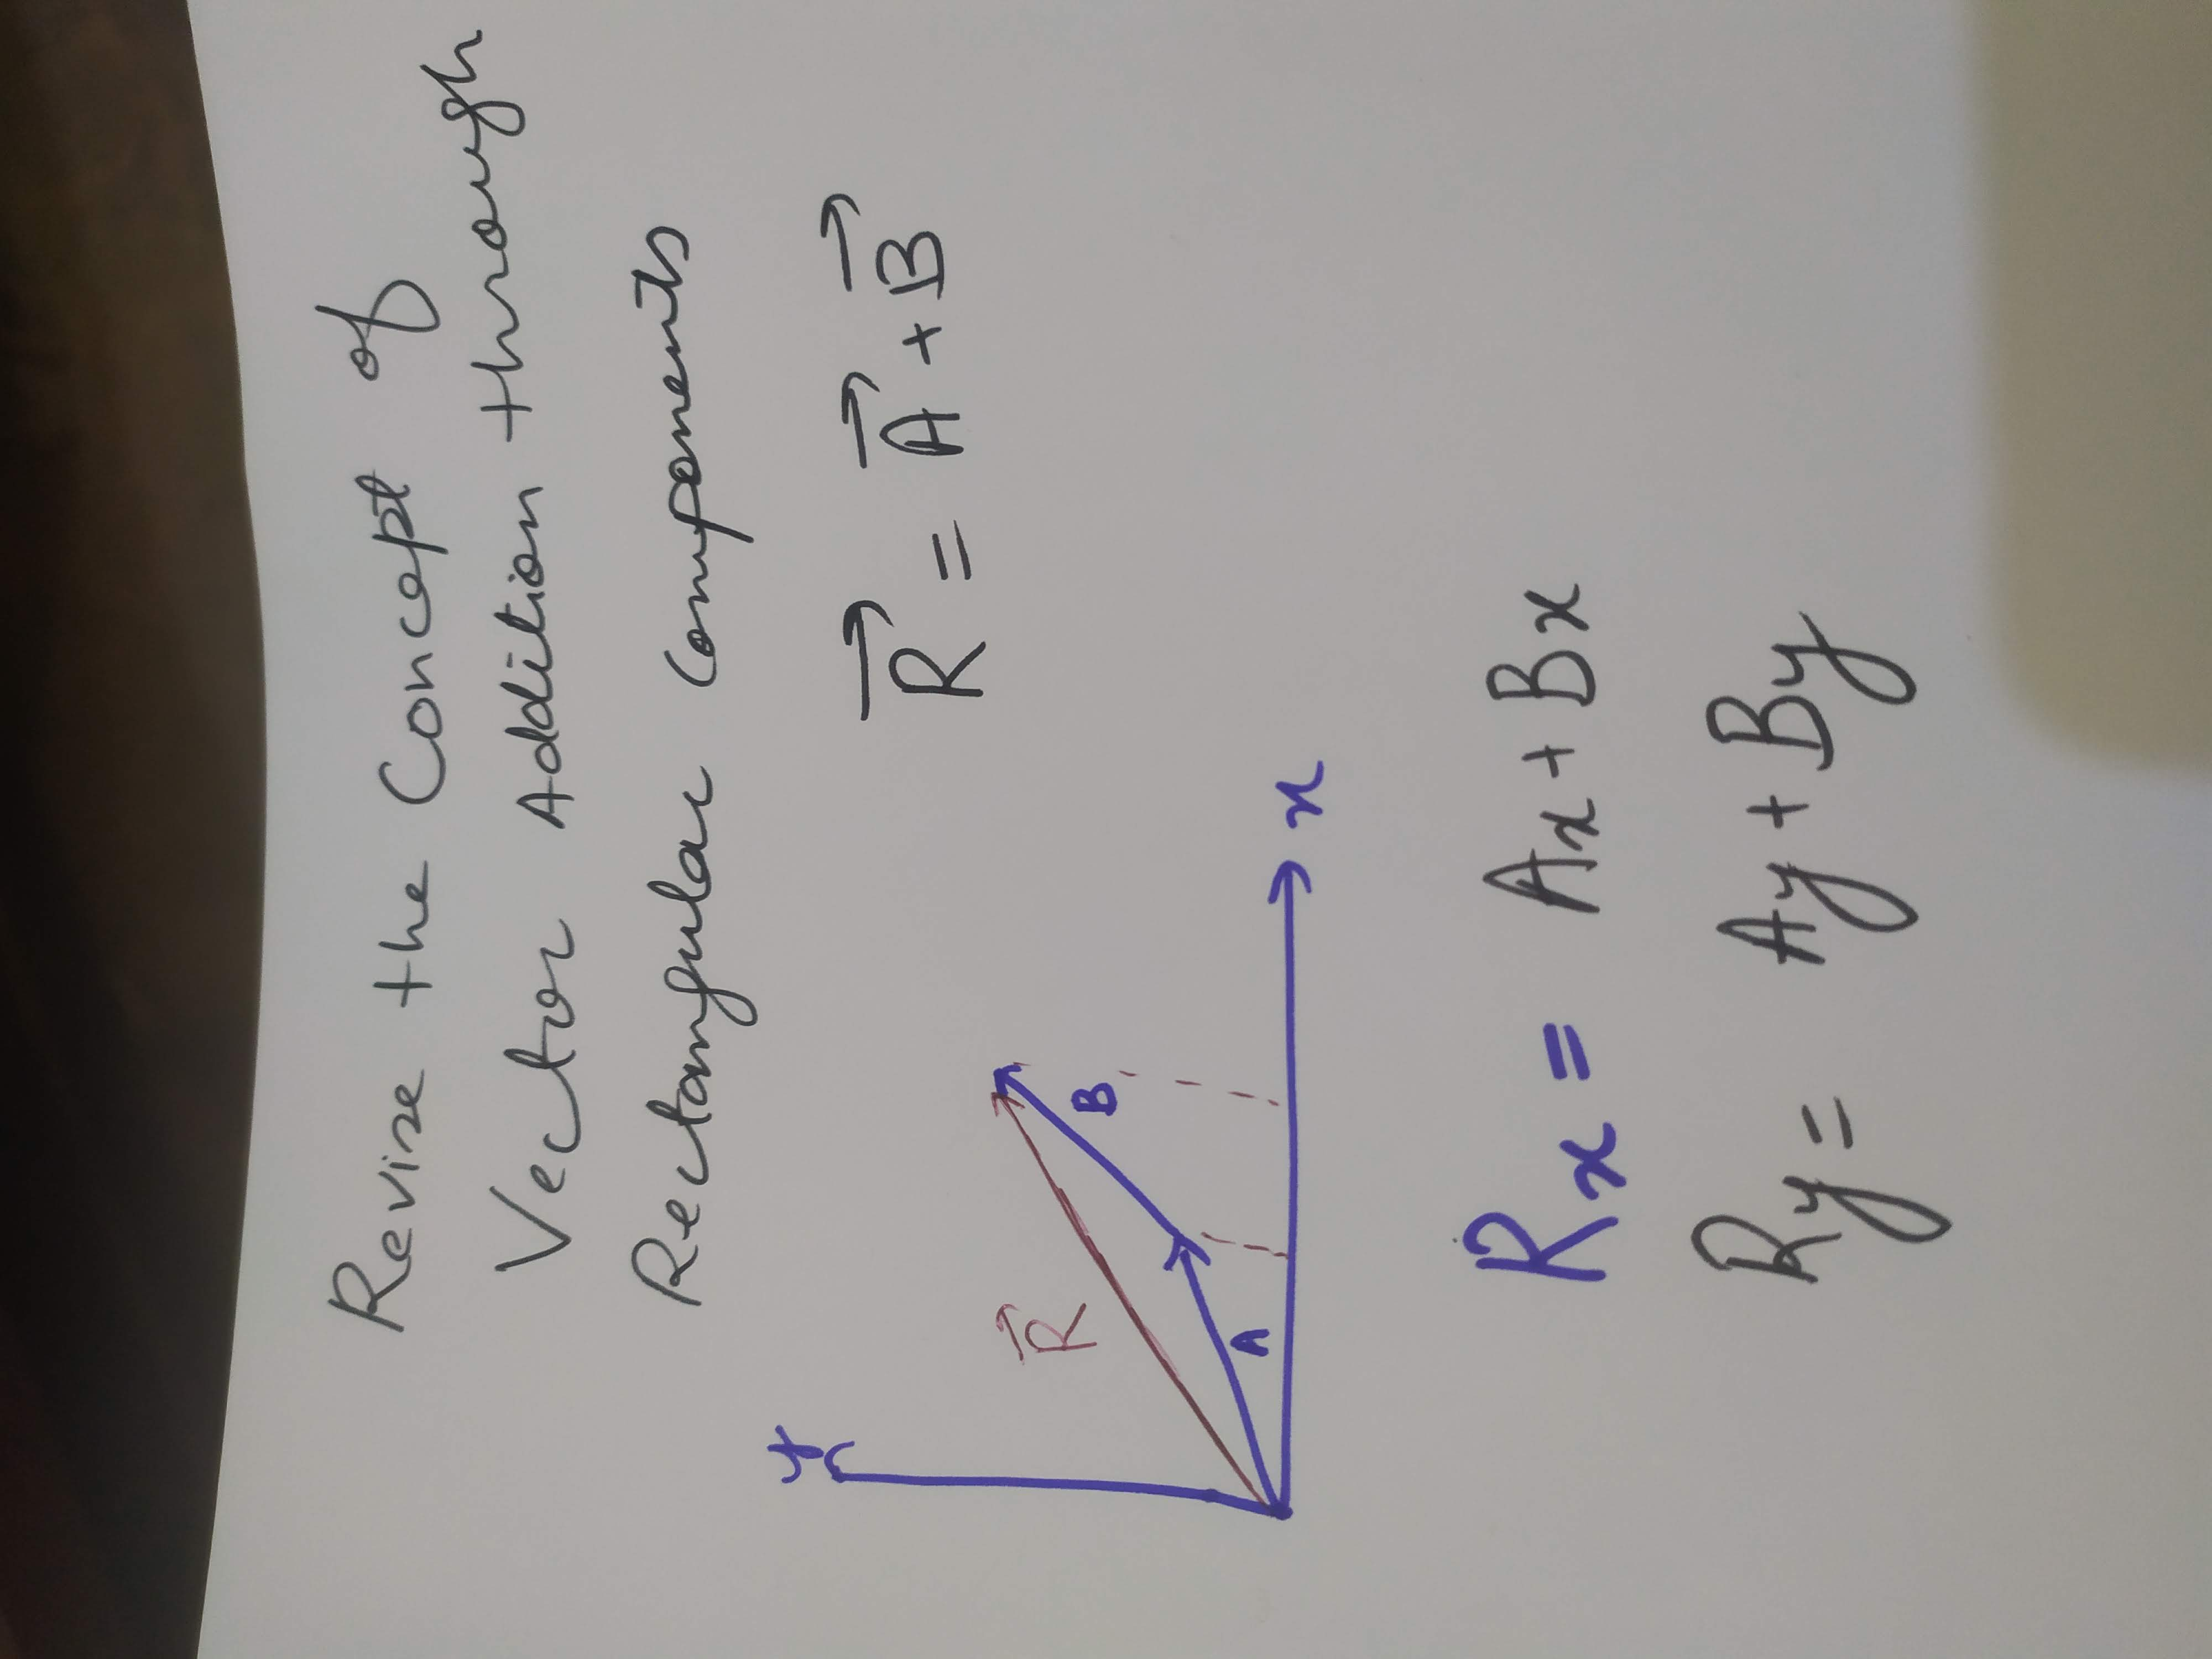 Revise the Concept of
Vector Addition through
Rectangular Components
R⃗ = A⃗ + B⃗
y
R⃗
B
A
x
Rx = Ax + Bx
Ry = Ay + By